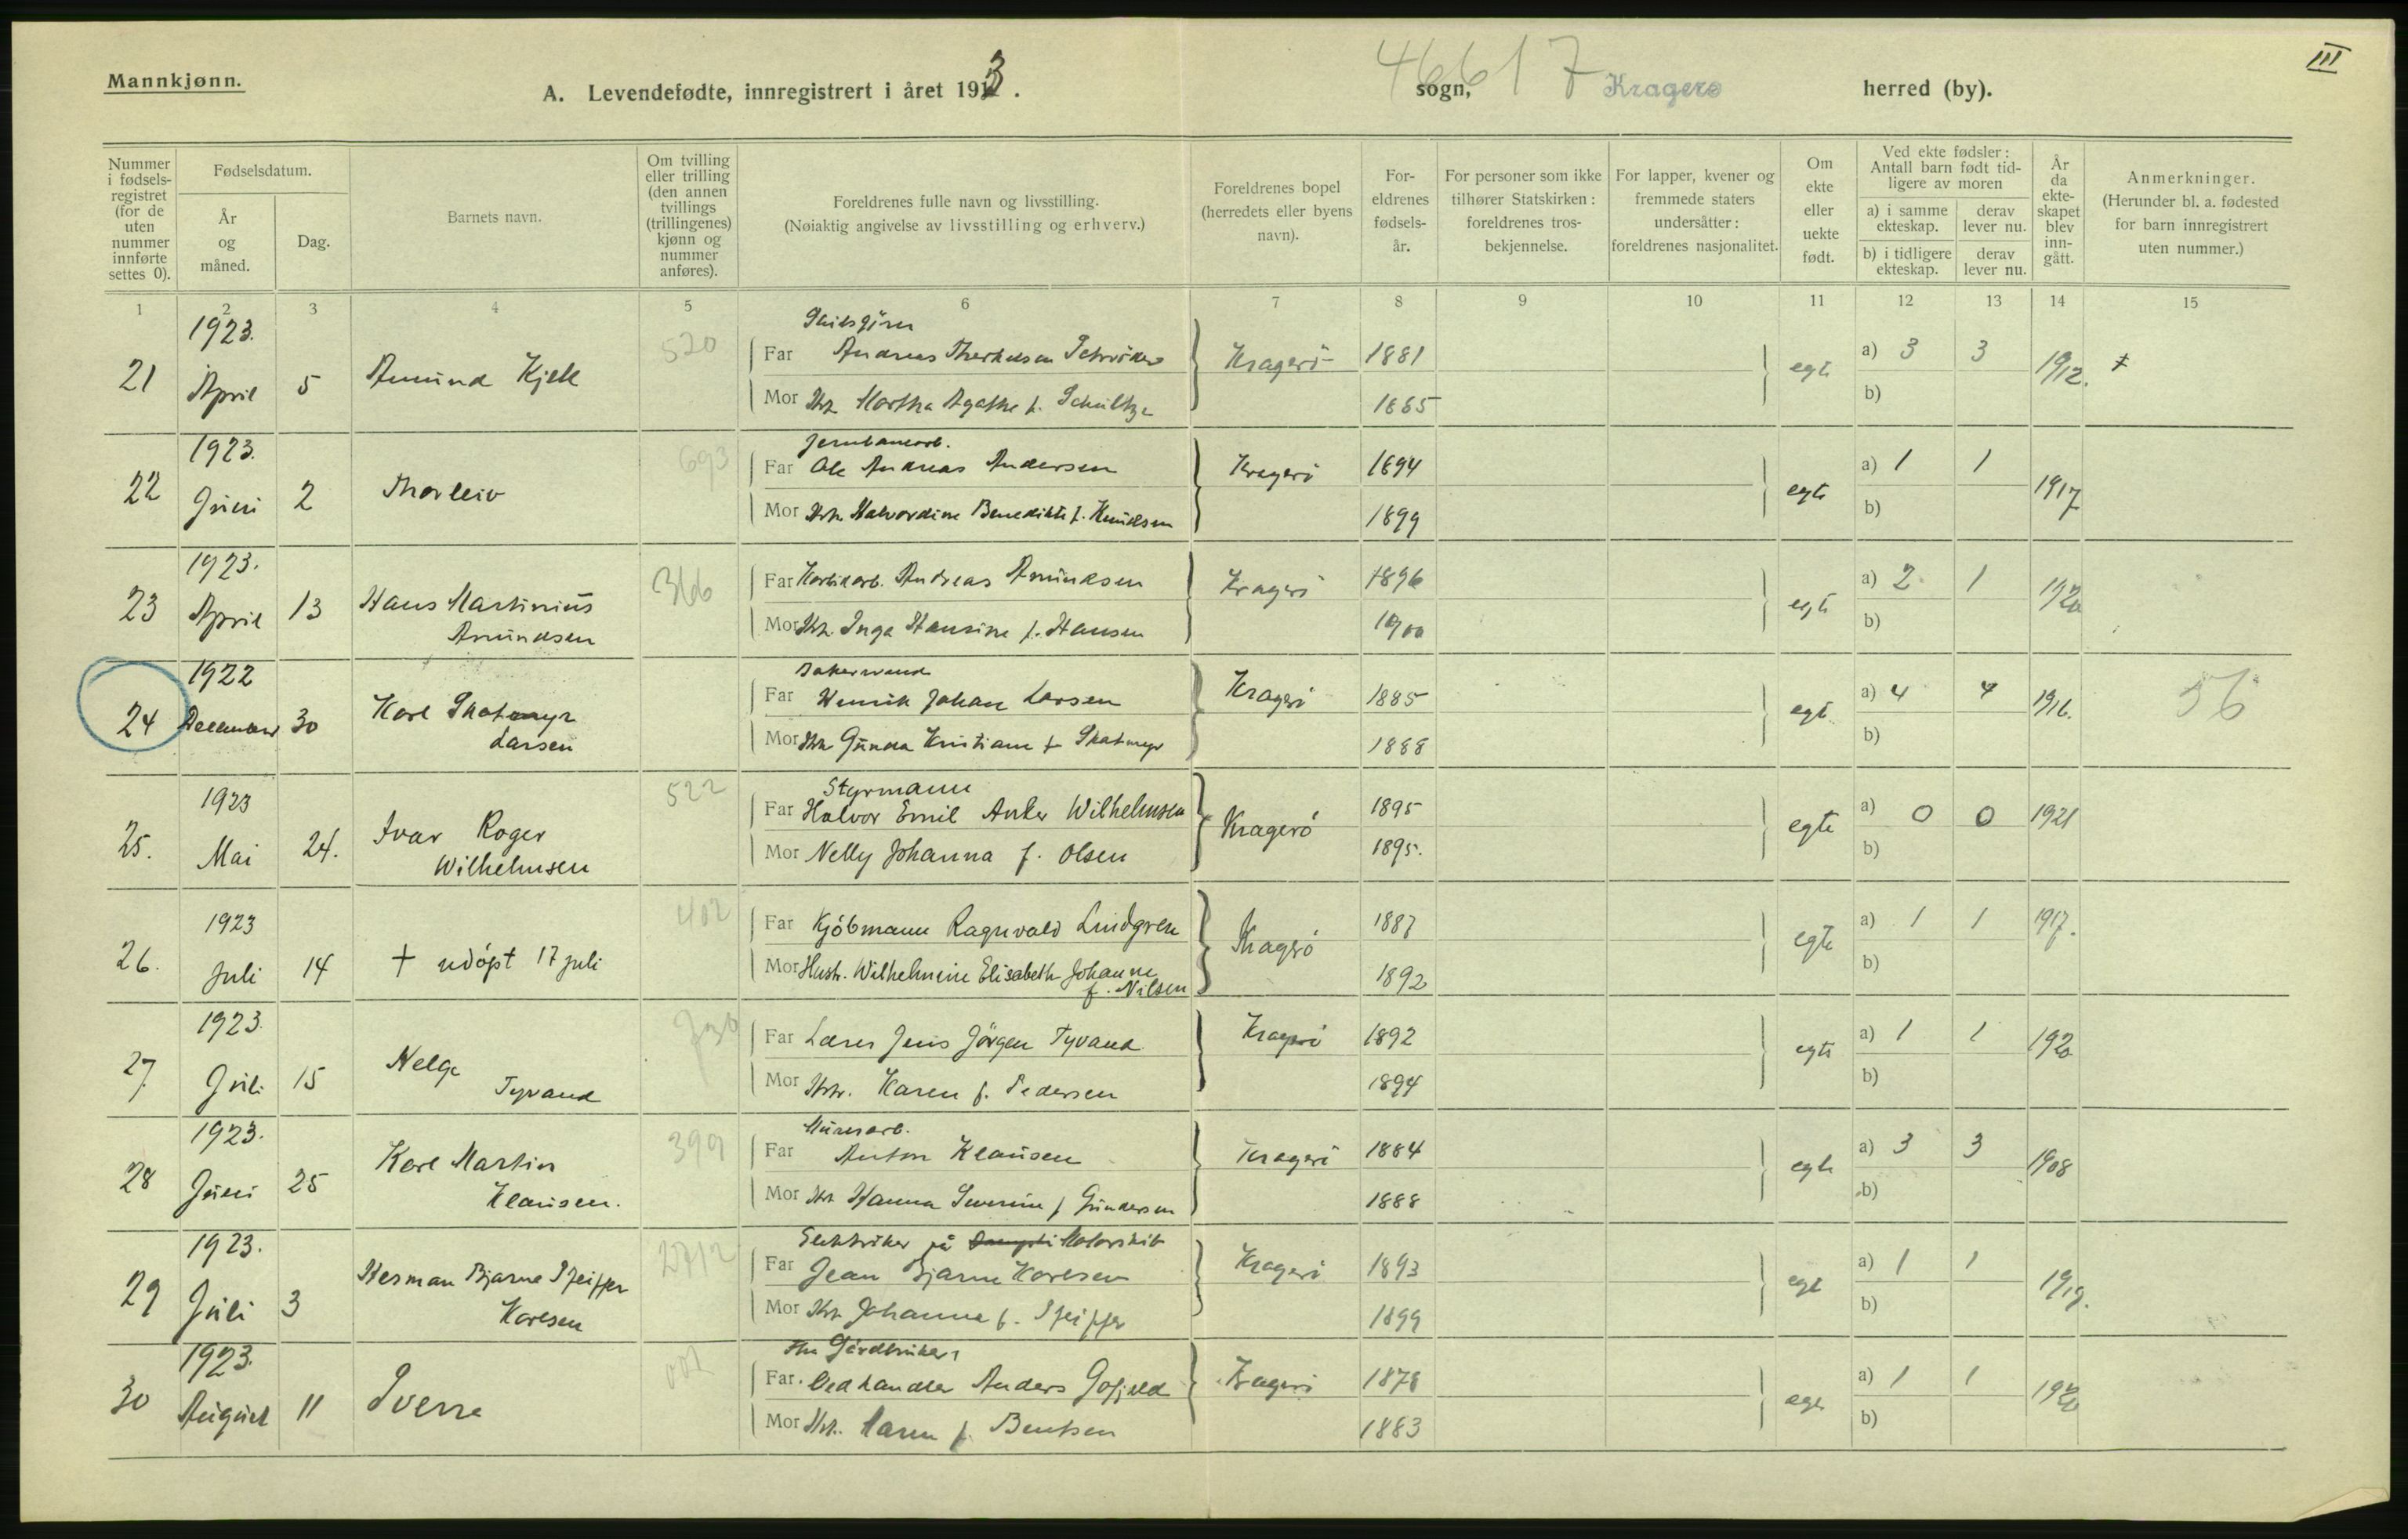 Mannkjønn.
A. Levendefødte, innregistrert i året 1913.
46617
sogn, Kragerø herred (by).
III
Nummer i fødselsregistret (for de uten nummer innførte settes 0).
Fødselsdatum.
År og måned.
Dag.
Barnets navn.
Om tvilling eller trilling (den annen tvillings (trillingenes) kjønn og nummer anføres).
Foreldrenes fulle navn og livsstilling.
(Nøiaktig angivelse av livsstilling og erhverv.)
Foreldrenes bopel (herredets eller byens navn).
Foreldrenes fødselsår.
For personer som ikke tilhører Statskirken: foreldrenes trosbekjennelse.
For lapper, kvener og fremmede staters undersåtter: foreldrenes nasjonalitet.
Om ekte eller uekte født.
Ved ekte fødsler: Antall barn født tidligere av moren
a) i samme ekteskap. derav lever nu.
b) i tidligere ekteskap. derav lever nu.
År da ekteskapet blev inngått.
Anmerkninger.
(Herunder bl. a. fødested for barn innregistrert uten nummer.)
1 2 3 4 5 6 7 8 9 10 11 12 13 14 15
1923.
21 April 5 Amund Kjell 520
Far Andreas
Mor Martha Agathe f. Schultze
Kragerö 1881
egte a) 3 3 1912.
b)
1923.
22 Juni 2 Thorleiv 693
Jernbanearb.
Far Ole Andreas Andersen
Mor Hstr. Halvordine Benedikte f. Knudsen
Kragerö 1894
1899
egte a) 1 1 1917
b)
1923.
23 April 13 Hans Martinius Amundsen 366
Far Andreas Amundsen
Mor Hstr. Inga Hansine f. Hansen
Kragerö 1896
1900
egte a) 2 1 1920
b)
1922
24 December 30 Karl Skatmyr Larsen
Far Henrik Johan Larsen
Mor Hstr. Gunda Kristiane f. Skatmyr
Kragerö 1885
1888
egte a) 4 4 1916. 56
b)
1923
25. Mai 24. Ivar Roger Wilhelmsen 522
Styrmann
Far Halvor Emil Anker Wilhelmsen
Mor Nelly Johanna f. Olsen
Kragerö 1895
1895.
egte a) 0 0 1921
b)
1923
26. Juli 14 + udöpt 17 juli 402
Far Kjöbmann Ragnvald Lindgren
Mor Hustr. Wilhelmine Elisabeth Johanne f. Nilsen
Kragerö 1887
1892
egte a) 1 1 1917.
b)
1923.
27 Juli 15 Helge Tyvand
Far Lærer Jens Jörgen Tyvand
Mor Hstr. Karen f. Pedersen
Kragerö 1892
1894
egte a) 1 1 1920
b)
1923.
28 Juni 25 Karl Martin Klausen. 399
Murerarb.
Far Anton Klausen
Mor Hstr. Hanna Severine f Gundersen
Kragerö 1884
1888
egte a) 3 3 1908
b)
1923.
29 Juli 3 Herman Bjarne Pfeiffer Karlsen
Elektriker på Motorskib
Far Jean Bjarne Karlsen
Mor Hstr. Johanne f. Pfeiffer
Kragerö 1893
1899
egte a) 1 1 1919.
b)
1923.
30 August 11 Sverre
Gårdbruker
Far Vedhandler Anders Gofjeld
Mor Hstr. Maren f. Bentsen
Kragerö 1878
1883
egte a) 1 1 1920
b)